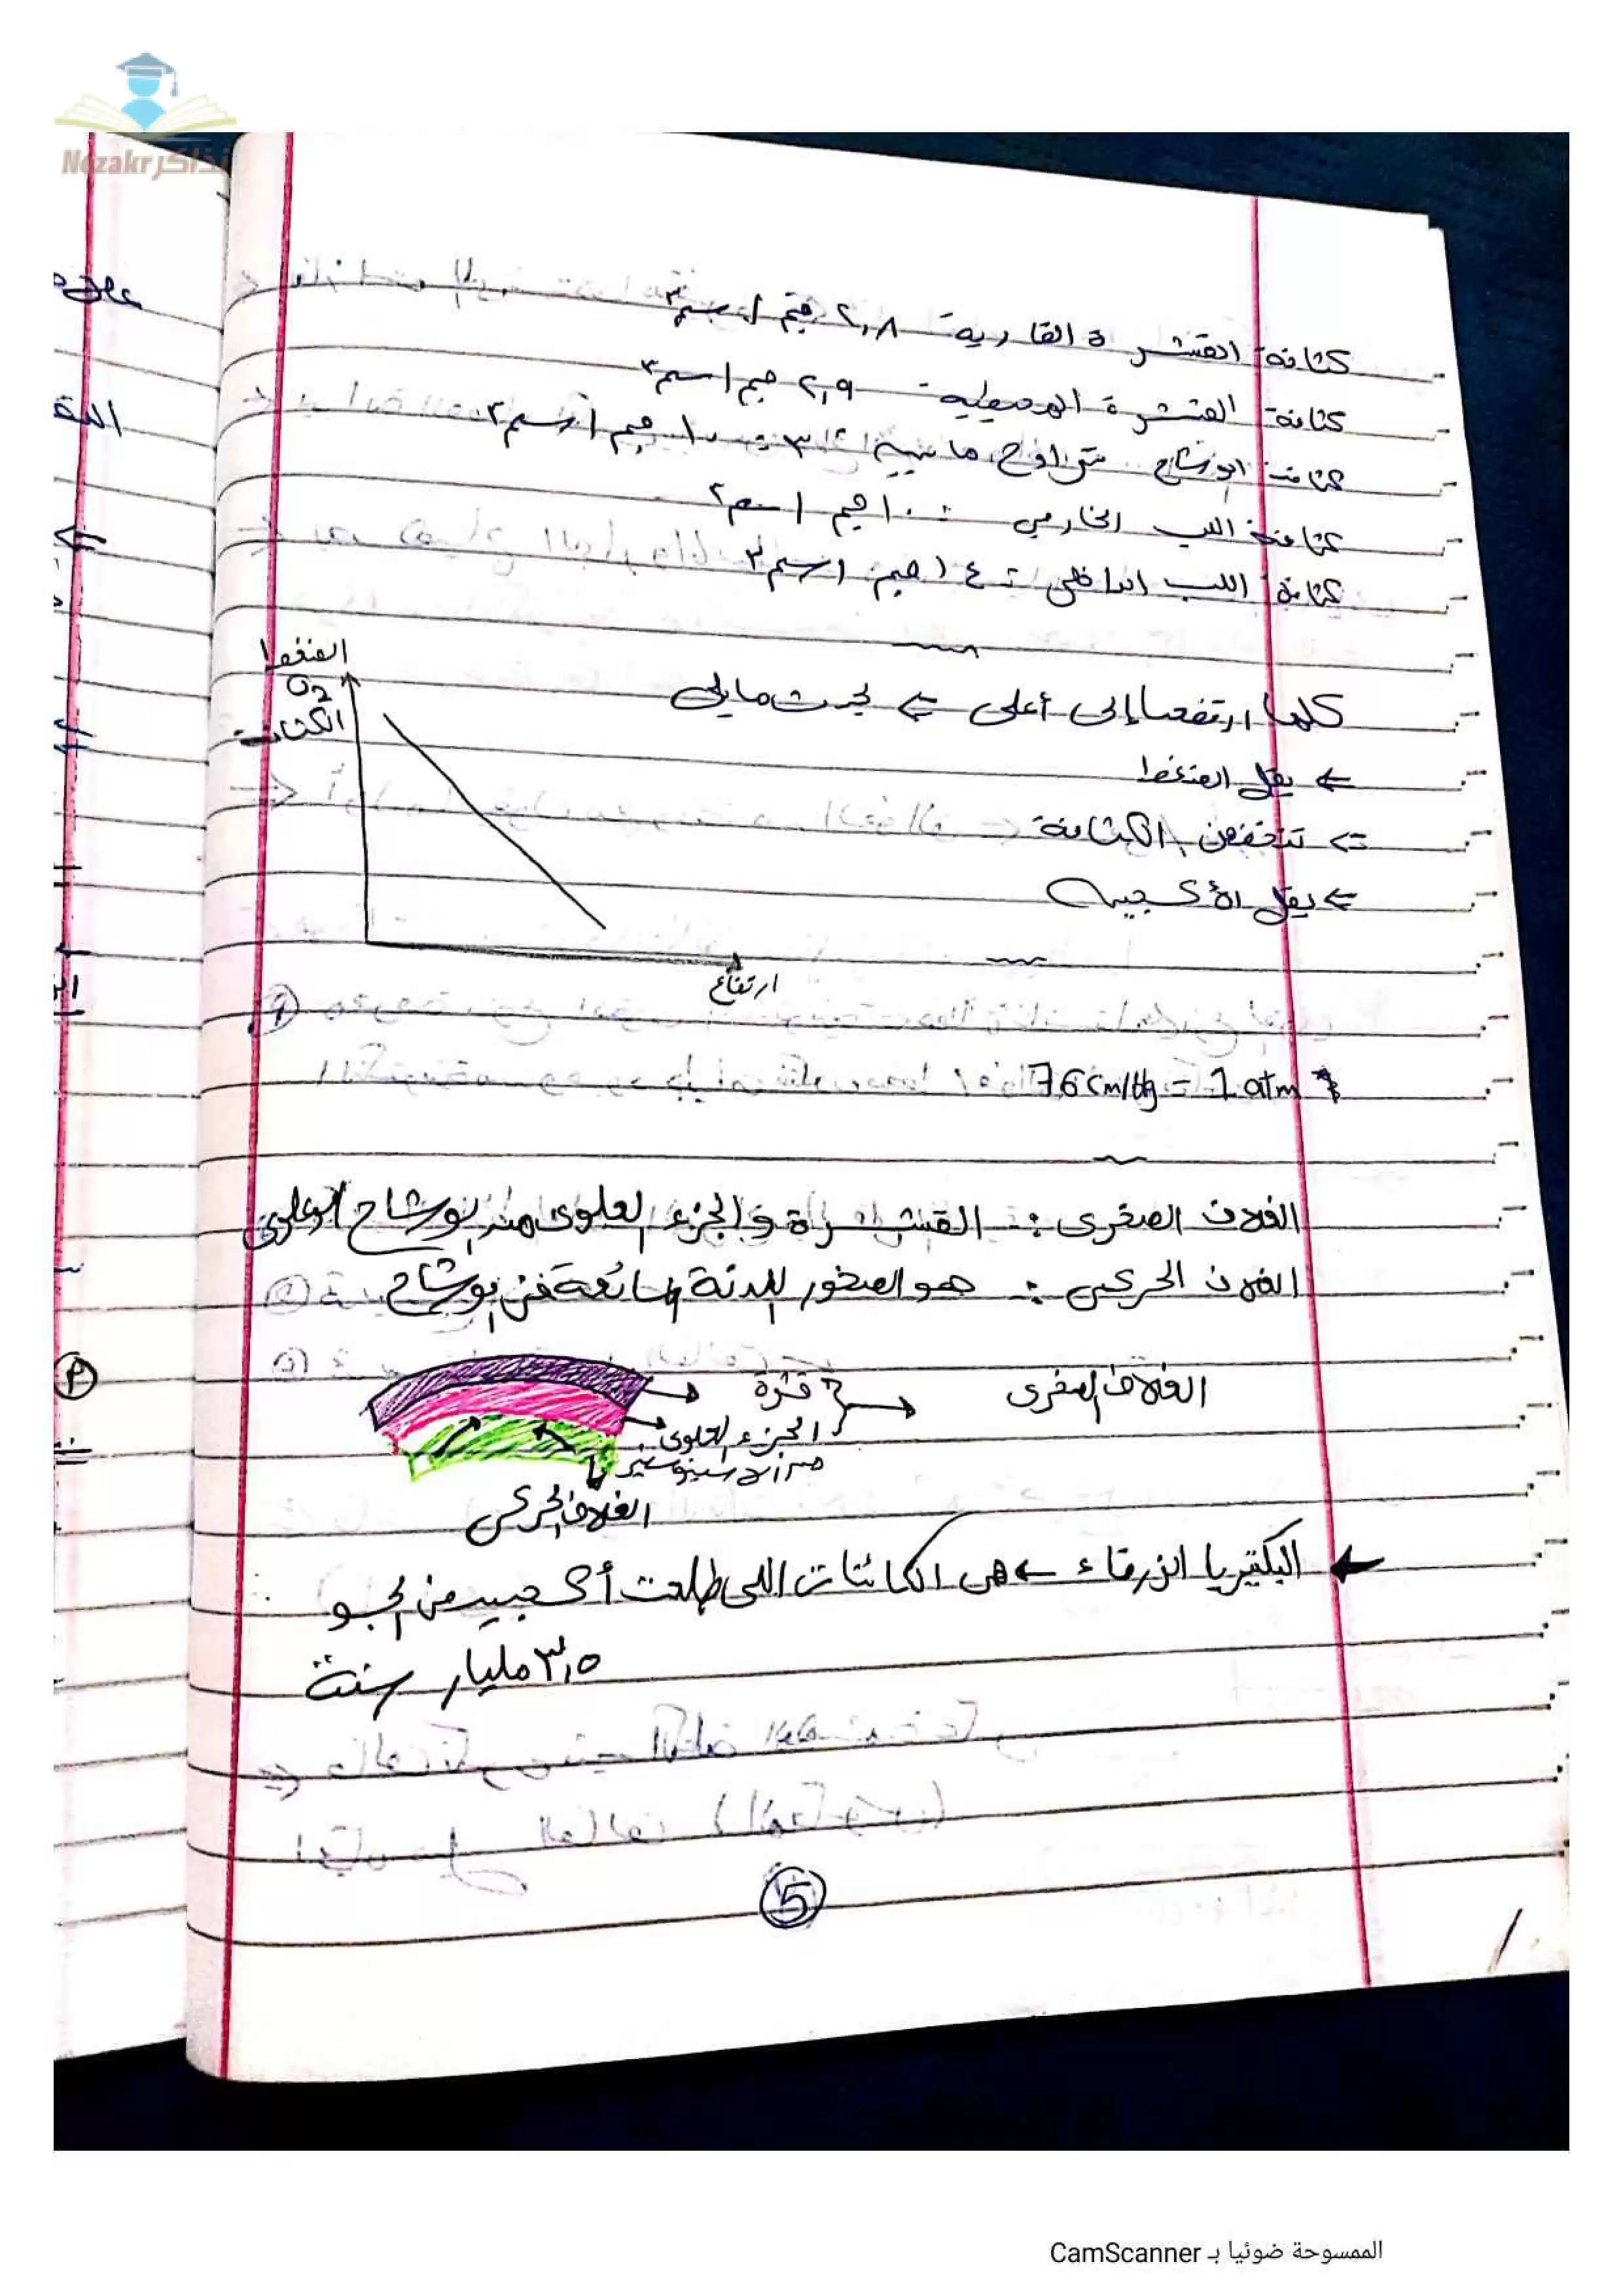 Nezakr نذاكر
كثافة القشرة القارية ٢,٨ جم / سم٣
كثافة القشرة المحيطية ٢,٩ جم / سم٣
كثافة الوشاح تتراوح ما بين ٣ : ١٠ جم / سم٣
كثافة اللب الخارجي : ١٠ جم / سم٣
كثافة اللب الداخلى : ١٤ جم / سم٣
كلما ارتفعنا إلى أعلى ⇐ يحدث مايلى
← يقل الضغط
⇐ تنخفض الكثافة
⇐ يقل الأكسجين
الضغط
O2
الكثافة
ارتفاع
76 cm/Hg = 1 atm *
الغلاف الصخرى : القشرة والجزء العلوى من الوشاح العلوى
الغلاف الحركى : هو الصخور اللدنة المائعة فى الوشاح
قشرة
الغلاف الصخرى
الجزء العلوى
من الاسينوسفير
الغلاف الحركى
← البكتيريا الزرقاء ← هى الكائنات اللى طلعت أكسجين فى الجو
٣,٥ مليار سنة
5
الممسوحة ضوئيا بـ CamScanner